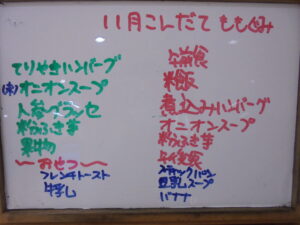 11月こんだて ももぐみ
てりやきハンバーグ
オニオンスープ
人参グラッセ
粉ふき芋
果物
〜おやつ〜
フレンチトースト
牛乳
午前食
米飯
煮込みハンバーグ
オニオンスープ
粉ふき芋
午後食
スティックパン
豆乳スープ
バナナ